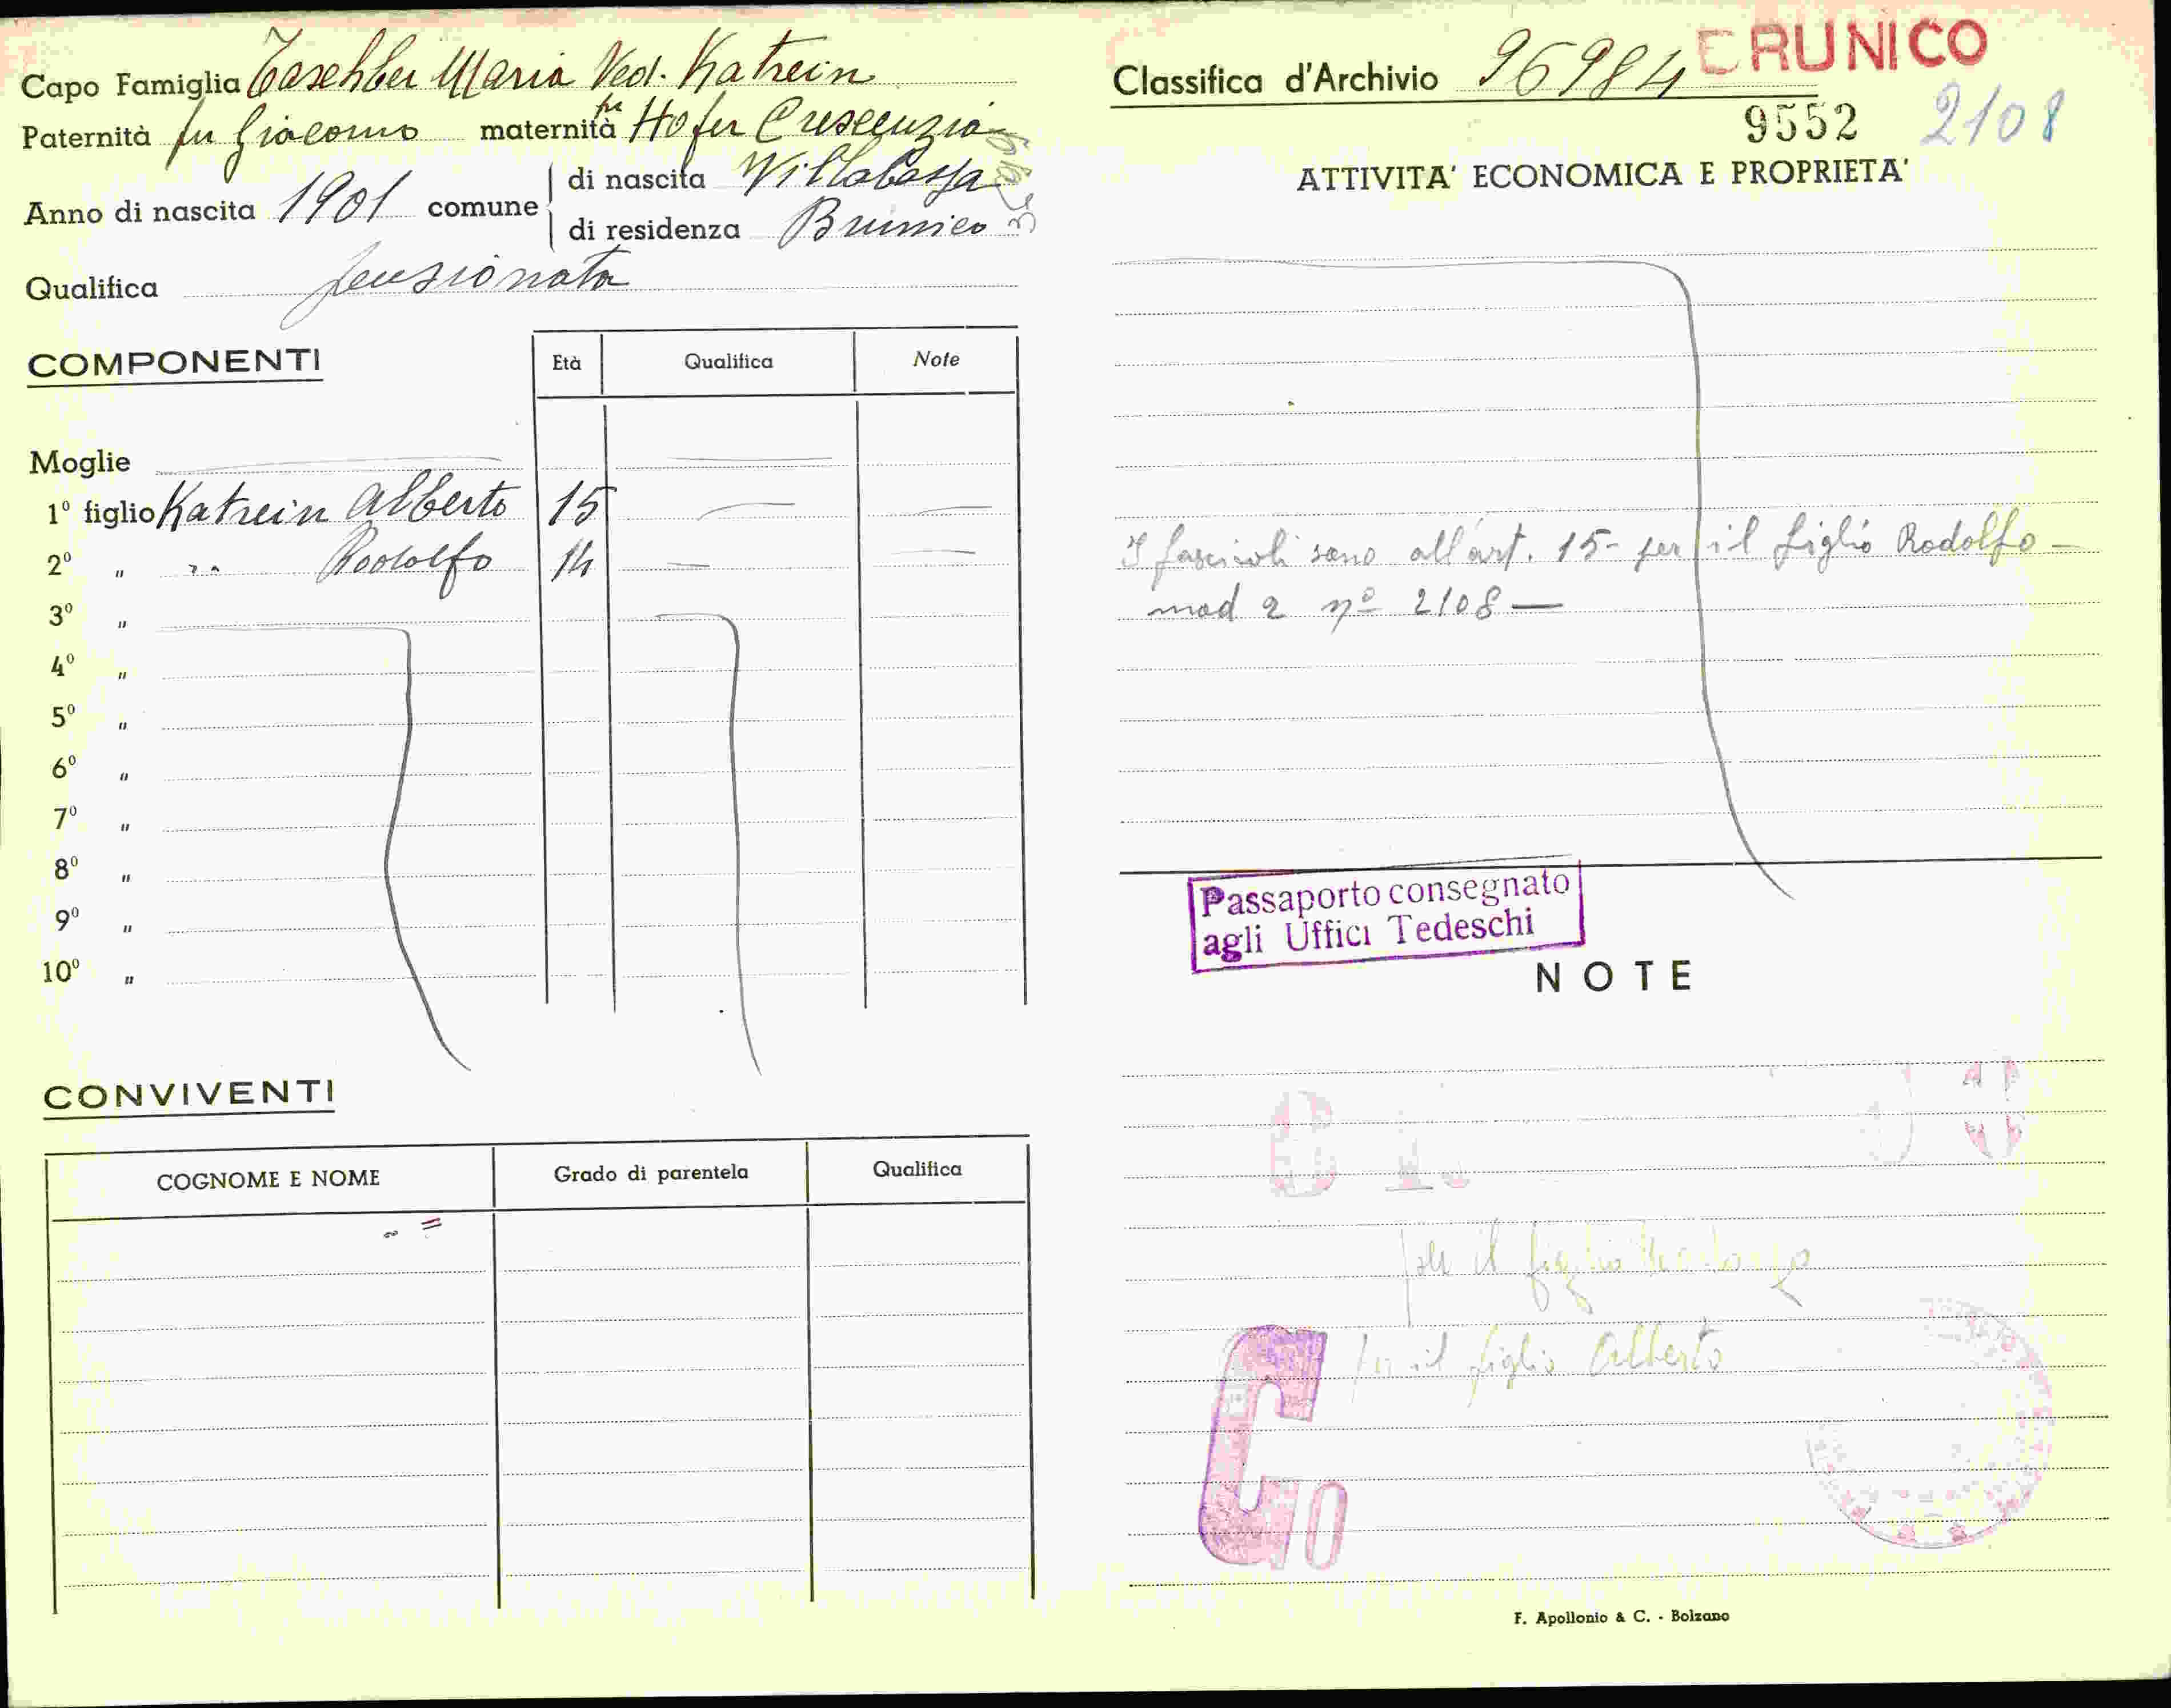 Capo Famiglia Taschler Maria Ved. Katrein
Paternità fu Giacomo maternità fu Hofer Crescenzia
Anno di nascita 1901 comune di nascita Villabassa
di residenza Brunico
Qualifica pensionata
COMPONENTI
Età Qualifica Note
Moglie
1º figlio Katrein Alberto 15
2º " " Rodolfo 14
3º "
4º "
5º "
6º "
7º "
8º "
9º "
10º "
CONVIVENTI
COGNOME E NOME Grado di parentela Qualifica
Classifica d'Archivio 96984 BRUNICO
9552 2108
ATTIVITA' ECONOMICA E PROPRIETA'
I fascicoli sono all'art. 15- per il figlio Rodolfo -
mod 2 nº 2108 —
Passaporto consegnato
agli Uffici Tedeschi
NOTE
per il figlio
per il figlio Alberto
G 10
F. Apollonio & C. - Bolzano